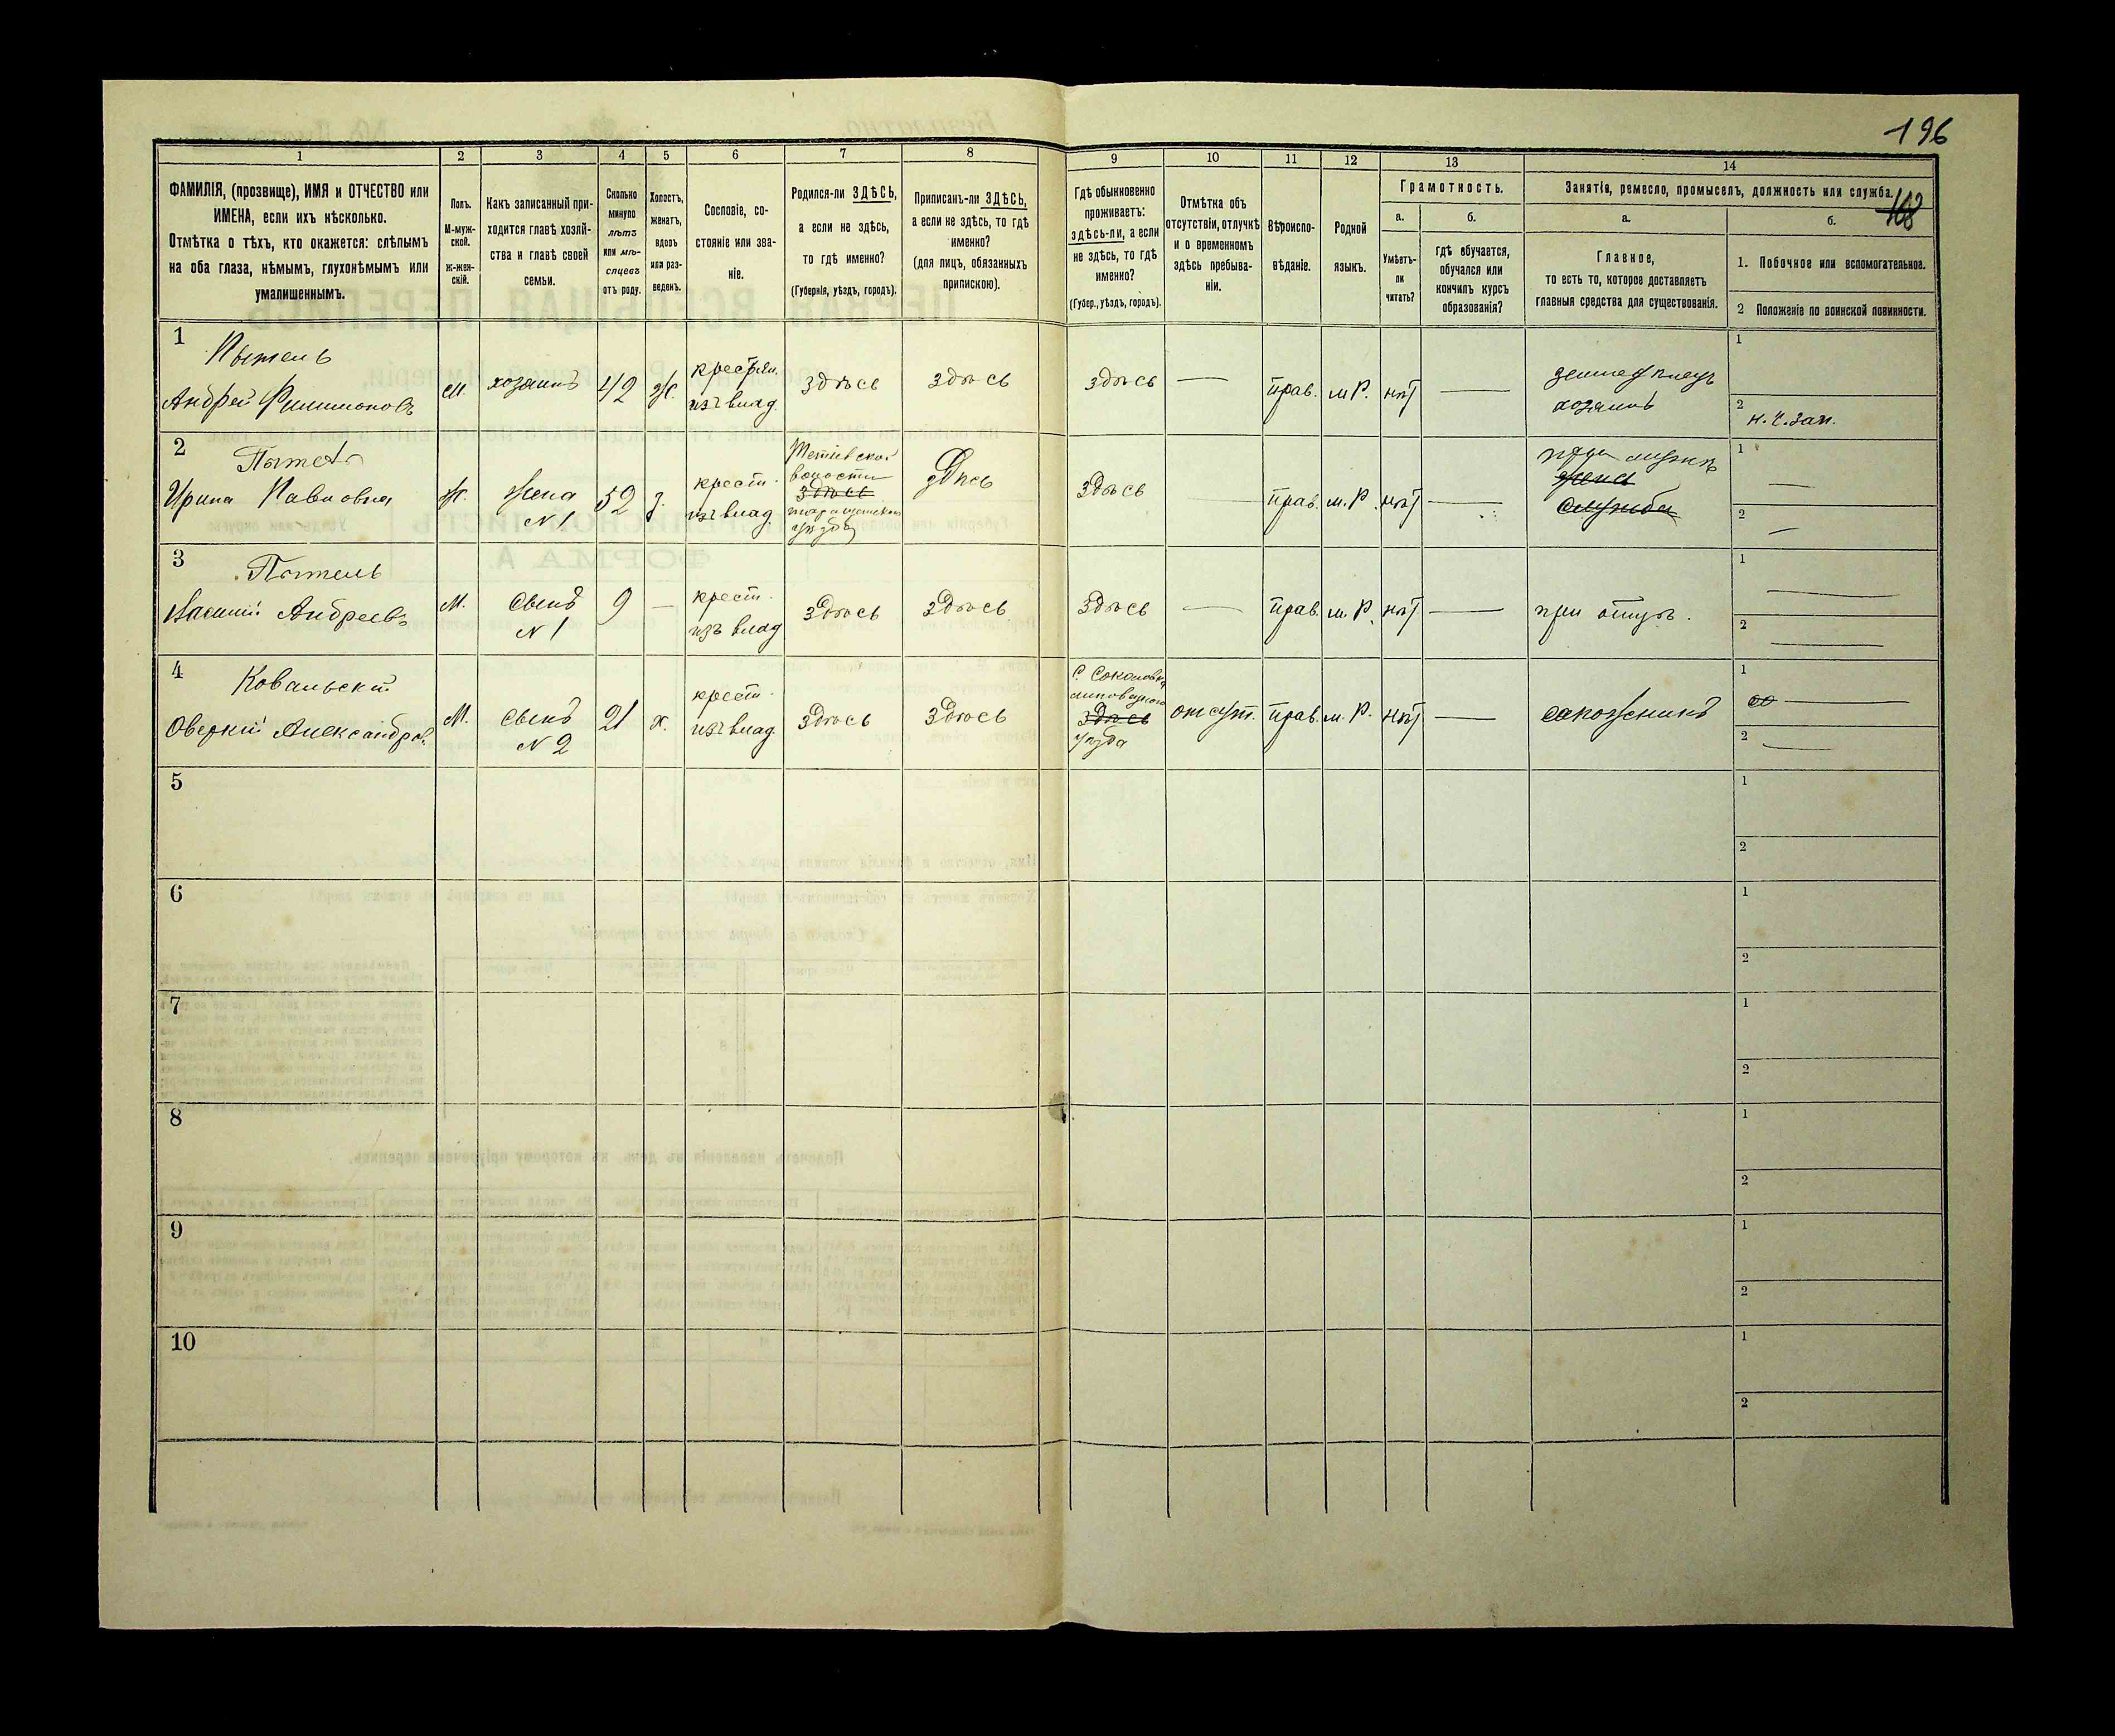 196
1 2 3 4 5 6 7 8 9 10 11 12 13 14
ФАМИЛІЯ, (прозвище), ИМЯ и ОТЧЕСТВО или
ИМЕНА, если ихъ нѣсколько.
Отмѣтка о тѣхъ, кто окажется: слѣпымъ
на оба глаза, нѣмымъ, глухонѣмымъ или
умалишеннымъ.
Полъ.
М-муж-
ской.
ж-жен-
скій.
Какъ записанный при-
ходится главѣ хозяй-
ства и главѣ своей
семьи.
Сколько
минуло
лѣтъ
или мѣ-
сяцевъ
отъ роду.
Холостъ,
женатъ,
вдовъ
или раз-
веденъ.
Сословіе, со-
стояніе или зва-
ніе.
Родился-ли ЗДѢСЬ,
а если не здѣсь,
то гдѣ именно?
(Губернія, уѣздъ, городъ).
Приписанъ-ли ЗДѢСЬ,
а если не здѣсь, то гдѣ
именно?
(для лицъ, обязанныхъ
припискою).
Гдѣ обыкновенно
проживаетъ:
здѣсь-ли, а если
не здѣсь, то гдѣ
именно?
(Губер., уѣздъ, городъ).
Отмѣтка объ
отсутствіи, отлучкѣ
и о временномъ
здѣсь пребыва-
ніи.
Вѣроиспо-
вѣданіе.
Родной
языкъ.
Грамотность.
а.
Умѣетъ-
ли
читать?
б.
гдѣ обучается,
обучался или
кончилъ курсъ
образованія?
Занятіе, ремесло, промыселъ, должность или служба.
168
а.
Главное,
то есть то, которое доставляетъ
главныя средства для существованія.
б.
1. Побочное или вспомогательное.
2 Положеніе по воинской повинности.
1
Пытель
Андрей Филимоновъ
М.
хозяинъ
42
ж.
крестьян.
изъ влад.
здѣсь
здѣсь
здѣсь
—
прав.
м.Р.
нѣт
—
землед
хозяинъ
1
2
н.ч.зап.
2
Пытель
Ирина Павловна
ж.
жена
N 1
52
з.
крест.
изъ влад.
Тетіевской
волости
здѣсь
таращанскаго
уѣзда
здѣсь
здѣсь
прав.
м.Р.
нѣт
—
при мужѣ
жена
служба
1
—
2
—
3
Пытель
Василій Андреевъ
М.
сынъ
N 1
9
—
крест.
изъ влад
здѣсь
здѣсь
здѣсь
—
прав.
м.Р.
нѣт
—
при отцѣ.
1
—
2
—
4
Ковальскій
Оверкій Александров.
М.
сынъ
N 2
21
х.
крест.
изъ влад.
здѣсь
здѣсь
С. Соколовка
липовецкаго
здѣсь
уѣзда
отсут.
прав.
м.Р.
нѣт
—
сапожникъ
1
—
2
—
5
1
2
6
1
2
7
1
2
8
1
2
9
1
2
10
1
2